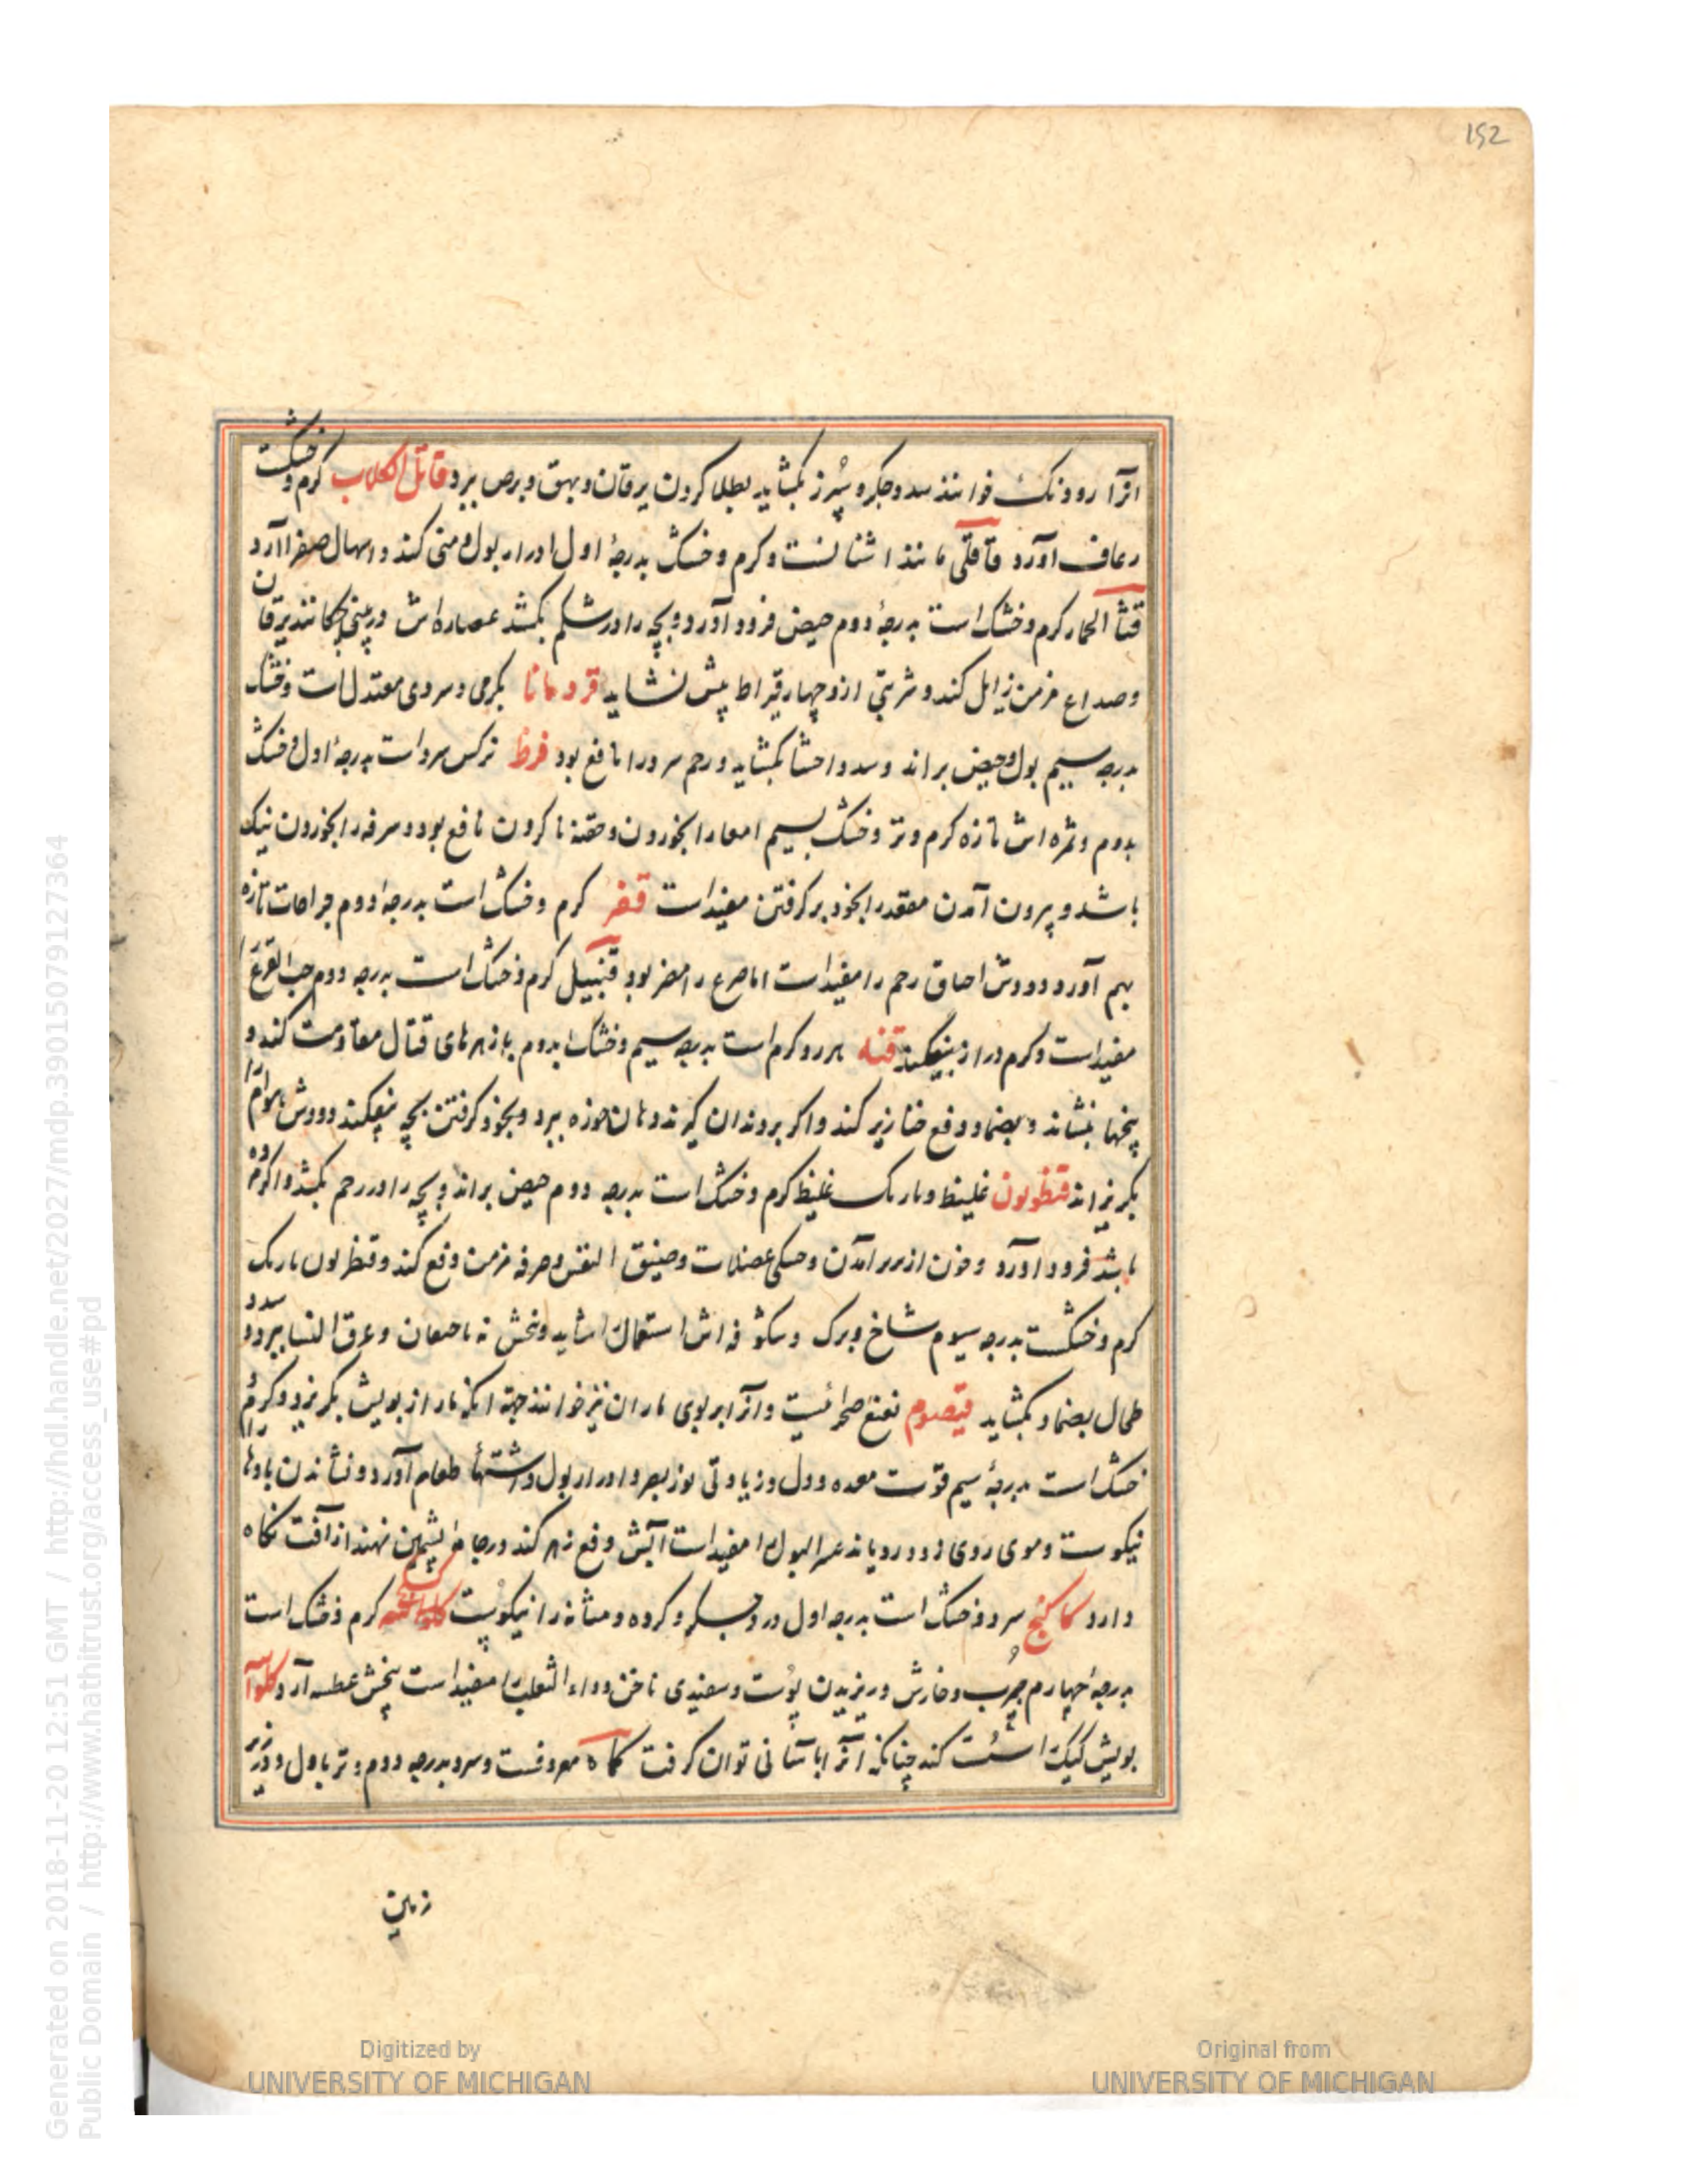 152
انرا رودنک خوانند سدد جکر و سپرز بکشاید بطلا کردن یرقان و بهق و برص ببرد قاتل الکلاب کرم و خشکست
رعاف آورد قاقلی مانند اشنانست و کرم و خشک بدرجهٔ اول ادرار بول و منی کند و اسهال صفرا آرد
قثآ الحمار کرم و خشک است بدرجهٔ دوم حیض فرود آورد و بچه را در شکم بکشد عصاره‌اش در بینی چکانند یرقان
و صداع مزمن زایل کند و شربتی ازو چهار قیراط بیش نشاید قردمانا بکرمی و سردی معتدل است و خشک
بدرجه سیم بول و حیض براند و سدد احشا بکشاید و رحم سرد را نافع بود قرظ نرکس سرد است بدرجهٔ اول و خشک
بدوم و ثمره اش تازه کرم و تر و خشک بسیم امعا را بخوردن و حقنه نا کردن نافع بود و سرفه را بخوردن نیک
باشد و بیرون آمدن مقعد را بخود بر کرفتن مفید است قفر کرم و خشک است بدرجهٔ دوم جراحات تازه
بهم آورد و دودش احناق رحم را مفید است اما صرع را مضر بود قنبیل کرم و خشک است بدرجه دوم حب القرع را
مفید است و کرم دراز بیفکند قنه بارزد کرم است بدرجه سیم و خشک بدوم با زهرهای قتال مقاومت کند و
پنجها بنشاند و بضماد دفع خنازیر کند و اکر بر دندان کیرند و همان خوزه ببرد و بخود کرفتن بچه بیفکند و دودش هوام را
بکریزاند قنطوریون غلیظ و باریک غلیظ کرم و خشک است بدرجه دوم حیض براند و بچه را در رحم بکشد و اکر مرده
باشد فرود آورد و خون از سر آمدن و خستکی عضلات و ضیق النفس و سرفه مزمن دفع کند و قنطریون باریک
کرم و خشکست بدرجه سیوم شاخ و برک و شکوفه اش استعمال را شاید و بخش نه باحتقان و عرق النسا ببرد و سدد
طحال بضماد بکشاید قیصوم نعنع صحرائیست و آنرا بربوی ماران نیز خوانند جهة آنکه مار از بویش بکریزد و کرم و
خشک است بدرجهٔ سیم قوت معده و دل و زیادتی نور بصر و ادرار بول و اشتهأ طعام آورد و نشاندن بادها را
نیکوست و موی روی زود رویاند عسر البول را مفید است آبش دفع زهر کند در جامهٔ پشمین نهند از آفت نکاه
دارد کاکنج سرد و خشک است بدرجه اول درد جکر و کرده و مثانه را نیکوست کرم و خشک است
بدرجهٔ چهارم جرب و خارش و ریزیدن پوست و سفیدی ناخن و داء الثعلب را مفید است بیخش عطسه آرد کلوآ
بویش کیک را سست کند چنانکه آنرا بآسانی توان کرفت کماه معروفست و سرد بدرجه دوم و تر باول و در زیر
زمین
Generated on 2018-11-20 12:51 GMT / http://hdl.handle.net/2027/mdp.39015079127364
Public Domain / http://www.hathitrust.org/access_use#pd
Digitized by
UNIVERSITY OF MICHIGAN
Original from
UNIVERSITY OF MICHIGAN